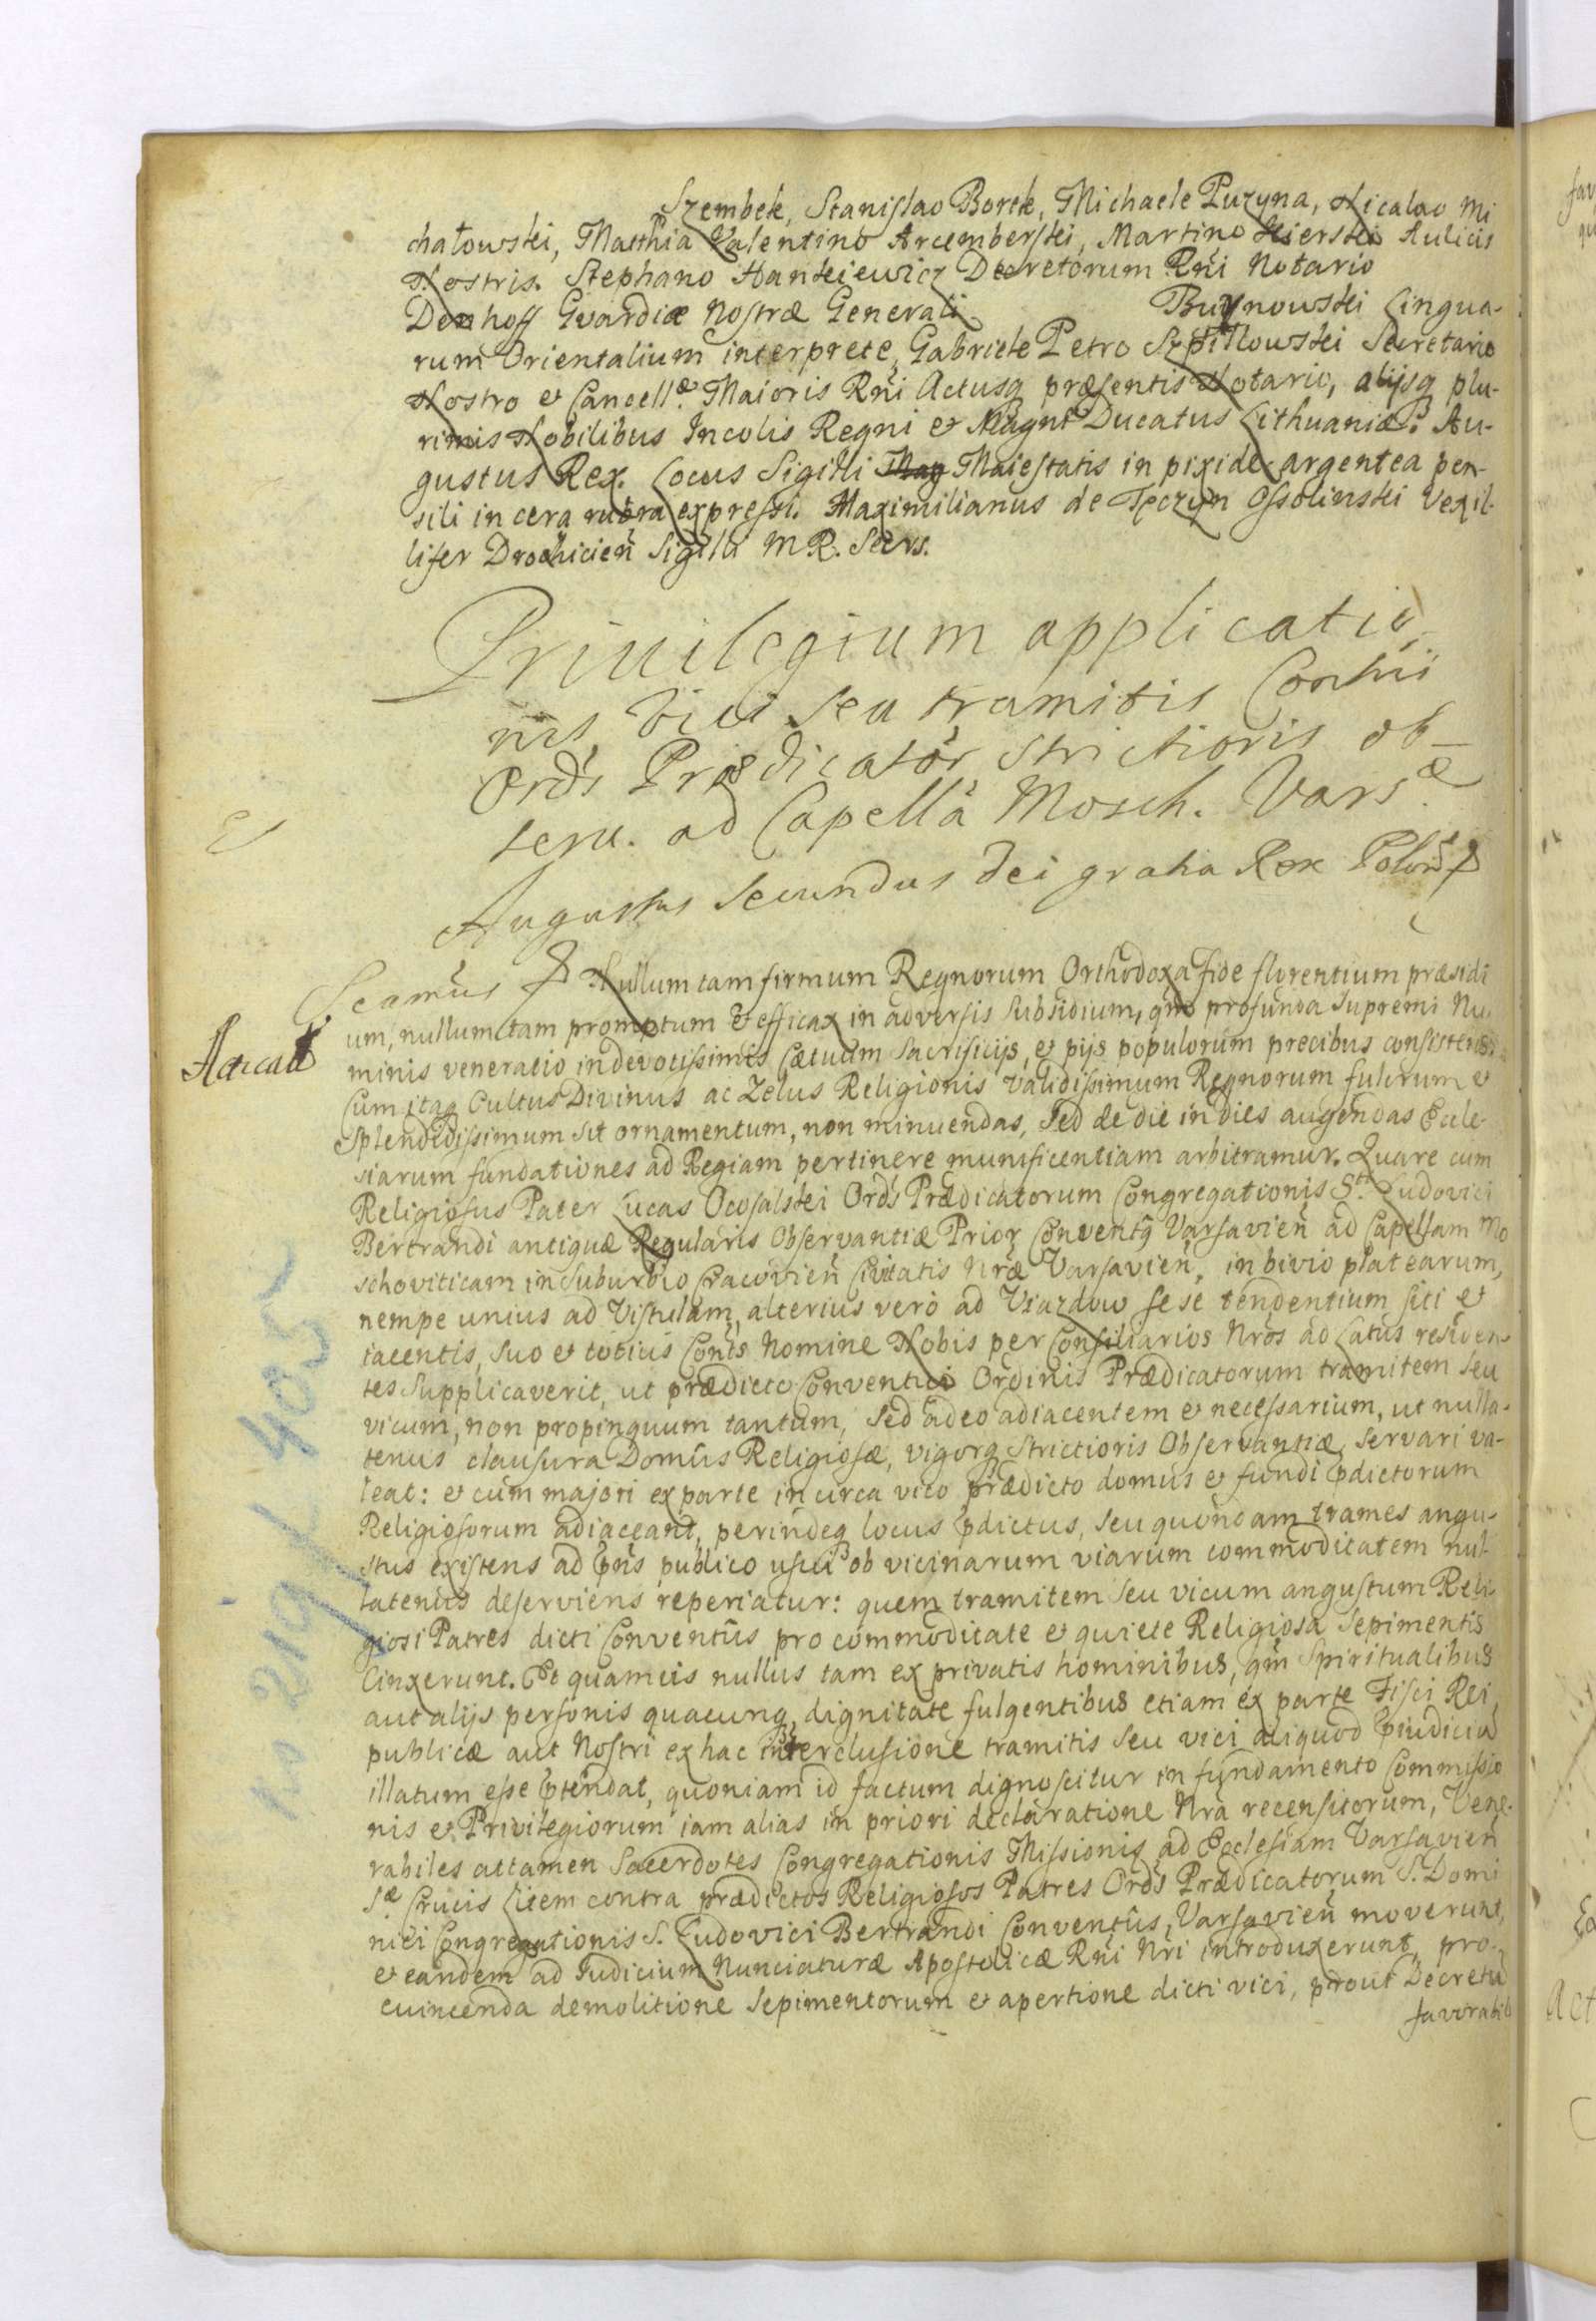 Szembek, Stanislao Borek, Michaele Puzyna, Nicalao Mi
chałowski, Matthia Valentino Arcemberski, Martino Kierski Aulicis
Nostris. Stephano Hankiewicz Decretorum Rñi Notario
Denhoff Gvardiæ Nostræ Generali Buynowski Lingua-
rum Orientalium interprete, Gabriele Petro Szpiłowski Secretario
Nostro et Cancellæ Maioris Rñi Actusq præsentis Notario, alijsq plu-
rimis Nobilibus Incolis Regni et Magni Ducatus Lithuaniæ. Au-
gustus Rex. Locus Sigilli May Maiestatis in pixide argentea pen-
sili in cera rubra expressi. Maximilianus de Tęczyn Ossolinski Vexil-
lifer Drohicień Sigilli M R. Secrs.
Priuilegium applicatio,
nis Vici seu tramitis Contui
Ords Prædicator strictioris ob-
seru. ad Capellã Mosch. Varsæ
Augustus Secundus Dei gratia Rex Polon
Nullum tam firmum Regnorum Orthodoxa fide florentium præsidi
um, nullum tam promptum & efficax in adversis subsidium, qmo profunda Supremi Nu,
minis veneratio in devotissimis Cætuum Sacrificijs, et pijs populorum precibus consistens
Cum itaq Cultus Divinus ac Zelus Religionis validissimum Regnorum fulcrum et
splendidissimum sit ornamentum, non minuendas, sed de die in dies augendas Eccle-
siarum fundationes ad Regiam pertinere munificentiam arbitramur. Quare cum
Religiosus Pater Lucas Ocosalski Ords Prædicatorum Congregationis Sti Ludovici
Bertrandi antiquæ Regularis Observantiæ Prior Conventq Varsavień ad Capellam Mo
schoviticam in Suburbio Cracovień Civitatis Nræ Varsavień, in bivio platearum,
nempe unius ad Vistulam, alterius verò ad Viazdow sese tendentium siti et
iacentis, suo et totius Conts Nomine Nobis per Consiliarios Nros ad Latus residen-
tes supplicaverit, ut prædicto Conventui Ordinis Prædicatorum tramitem seu
vicum, non propinquum tantum, sed adeo adiacentem et necessarium, ut nulla-
tenus clausura Domûs Religiosæ, vigorq Strictioris Observantiæ, servari va-
leat: et cum majori ex parte in circa vico prædicto domus et fundi pdictorum
Religiosorum adiaceant, perindeq locus pdictus, seu quondam trames angu-
stus existens ad pñs publico usui ob vicinarum viarum commoditatem nul-
latenus deserviens reperiatur: quem tramitem seu vicum angustum Reli-
giosi Patres dicti Conventûs pro commoditate et quiete Religiosa Sepimentis
Cinxerunt. Et quamvis nullus tam ex privatis hominibus, qm Spiritualibus
aut alijs personis quacunq, dignitate fulgentibus etiam ex parte Fisci Rei
publicæ aut Nostri ex hac interclusione tramitis seu vici aliquod piudiciũ
illatum esse ptendat, quoniam id factum dignoscitur in fundamento Commissio
nis et Privilegiorum iam alias in priori declaratione Nra recensitorum, Vene-
rabiles attamen Sacerdotes Congregationis Missionis ad Ecclesiam Varsavień
Sæ Crucis Litem contra prædictos Religiosos Patres Ords Prædicatorum S. Domi
nici Congregationis S. Ludovici Bertrandi Conventûs, Varsavień moverunt,
et eandem ad Judicium Nunciaturæ Apostolicæ Rñi Nri introduxerunt, pro-
evincenda demolitione sepimentorum et apertione dicti vici, prout Decretũ
favorabil